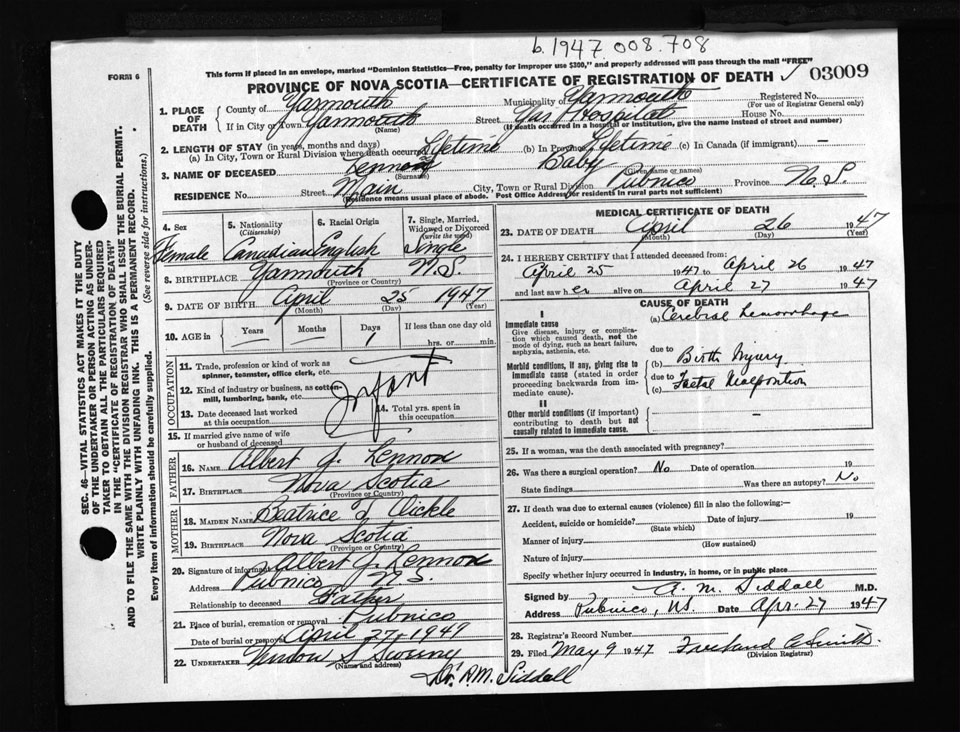 b.1947.008.708
This form if placed in an envelope, marked "Dominion Statistics—Free, penalty for improper use $300," and properly addressed will pass through the mail "FREE"
FORM 6
PROVINCE OF NOVA SCOTIA—CERTIFICATE OF REGISTRATION OF DEATH 03009
1. PLACE OF DEATH
County of Yarmouth Municipality of Yarmouth Registered No.
(For use of Registrar General only)
If in City or Town Yarmouth Street Hospital House No.
(Name) (If death occurred in a hospital or institution, give the name instead of street and number)
2. LENGTH OF STAY (in years, months and days)
(a) In City, Town or Rural Division where death occurred Lifetime (b) In Province Lifetime (c) In Canada (if immigrant) —
3. NAME OF DECEASED Lennox Baby
(Surname) (Given name or names)
RESIDENCE No. Street Main City, Town or Rural Division Pubnico Province N.S.
(Residence means usual place of abode. Post Office Address for residents in rural parts not sufficient)
4. Sex 5. Nationality (Citizenship) 6. Racial Origin 7. Single, Married, Widowed or Divorced (write the word)
Female Canadian English Single
8. BIRTHPLACE Yarmouth N.S.
(Province or Country)
9. DATE OF BIRTH April 25 1947
(Month) (Day) (Year)
10. AGE in Years Months Days If less than one day old
— — 1 hrs. or min.
OCCUPATION
11. Trade, profession or kind of work as spinner, teamster, office clerk, etc.
12. Kind of industry or business, as cotton-mill, lumbering, bank, etc.
Infant
13. Date deceased last worked at this occupation
14. Total yrs. spent in this occupation
15. If married give name of wife or husband of deceased
FATHER
16. NAME Albert J. Lennox
17. BIRTHPLACE Nova Scotia
(Province or Country)
MOTHER
18. MAIDEN NAME Beatrice
19. BIRTHPLACE Nova Scotia
(Province or Country)
20. Signature of informant Albert J. Lennox
Address Pubnico N.S.
Relationship to deceased Father
21. Place of burial, cremation or removal Pubnico
Date of burial or removal April 27, 1947
22. UNDERTAKER
(Name and address)
Dr. A.M. Siddall
MEDICAL CERTIFICATE OF DEATH
23. DATE OF DEATH April 26 1947
(Month) (Day) (Year)
24. I HEREBY CERTIFY that I attended deceased from:
April 25 1947 to April 26 1947
and last saw her alive on April 27 1947
CAUSE OF DEATH
I
Immediate cause
Give disease, injury or complication which caused death, not the mode of dying, such as heart failure, asphyxia, asthenia, etc.
(a) Cerebral hemorrhage
due to
Morbid conditions, if any, giving rise to immediate cause (stated in order proceeding backwards from immediate cause).
(b) Birth Injury
due to
(c) Faetal Malposition
II
Other morbid conditions (if important) contributing to death but not causally related to immediate cause.
—
25. If a woman, was the death associated with pregnancy?
26. Was there a surgical operation? No Date of operation 19
State findings Was there an autopsy? No
27. If death was due to external causes (violence) fill in also the following:—
Accident, suicide or homicide? Date of injury 19
(State which)
Manner of injury
(How sustained)
Nature of injury
Specify whether injury occurred in industry, in home, or in public place
Signed by A. M. Siddall M.D.
Address Pubnico, NS. Date Apr. 27 1947
28. Registrar's Record Number
29. Filed May 9 1947 Smith
(Division Registrar)
SEC. 46—VITAL STATISTICS ACT MAKES IT THE DUTY
OF THE UNDERTAKER OR PERSON ACTING AS UNDERTAKER
TO OBTAIN ALL THE PARTICULARS REQUIRED
IN THE "CERTIFICATE OF REGISTRATION OF DEATH"
AND TO FILE THE SAME WITH THE DIVISION REGISTRAR WHO SHALL ISSUE THE BURIAL PERMIT.
WRITE PLAINLY WITH UNFADING INK. THIS IS A PERMANENT RECORD.
Every item of information should be carefully supplied. (See reverse side for instructions.)